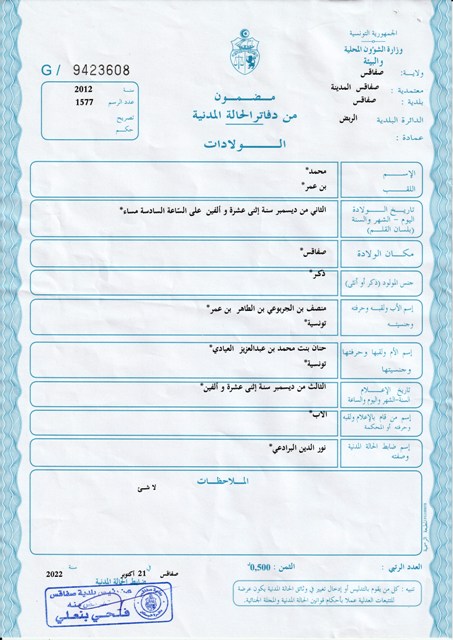 الجمهورية التونسية
وزارة الشؤون المحلية
والبيئة
ولاية: صفاقس
معتمدية: صفاقس المدينة
بلدية: صفاقس
الدائرة البلدية الربض
عمادة:
G/ 9423608
سنة 2012
عدد الرسم 1577
تصريح
حكم
مضمون
من دفاتر الحالة المدنية
الولادات
الإسم محمد*
اللقب بن عمر*
تاريخ الولادة
اليوم - الشهر والسنة
(بلسان القلم)
الثاني من ديسمبر سنة إثنى عشرة و ألفين على الساعة السادسة مساء*
مكان الولادة صفاقس*
جنس المولود (ذكر أو أنثى) ذكر*
إسم الأب ولقبه وحرفته
وجنسيته
منصف بن الجربوعي بن الطاهر بن عمر*
تونسية*
إسم الأم ولقبها وحرفتها
وجنسيتها
حنان بنت محمد بن عبدالعزيز العيادي*
تونسية*
تاريخ الإعلام
السنة-الشهر واليوم والساعة
الثالث من ديسمبر سنة إثنى عشرة و ألفين*
إسم من قام بالإعلام ولقبه
وحرفته أو المحكمة
الأب*
إسم ضابط الحالة المدنية
وصفته
نور الدين البرادعي*
الملاحظات
لا شئ
العدد الرتبي: الثمن: 0,500
صفاقس في 21 أكتوبر سنة 2022
ضابط الحالة المدنية
عن رئيس بلدية صفاقس
فتحي بنعلي
تنبيه: كل من يقوم بالتدليس أو إدخال تغيير في وثائق الحالة المدنية يكون عرضة
للتتبعات العدلية عملا بأحكام قوانين الحالة المدنية والمجلة الجنائية.